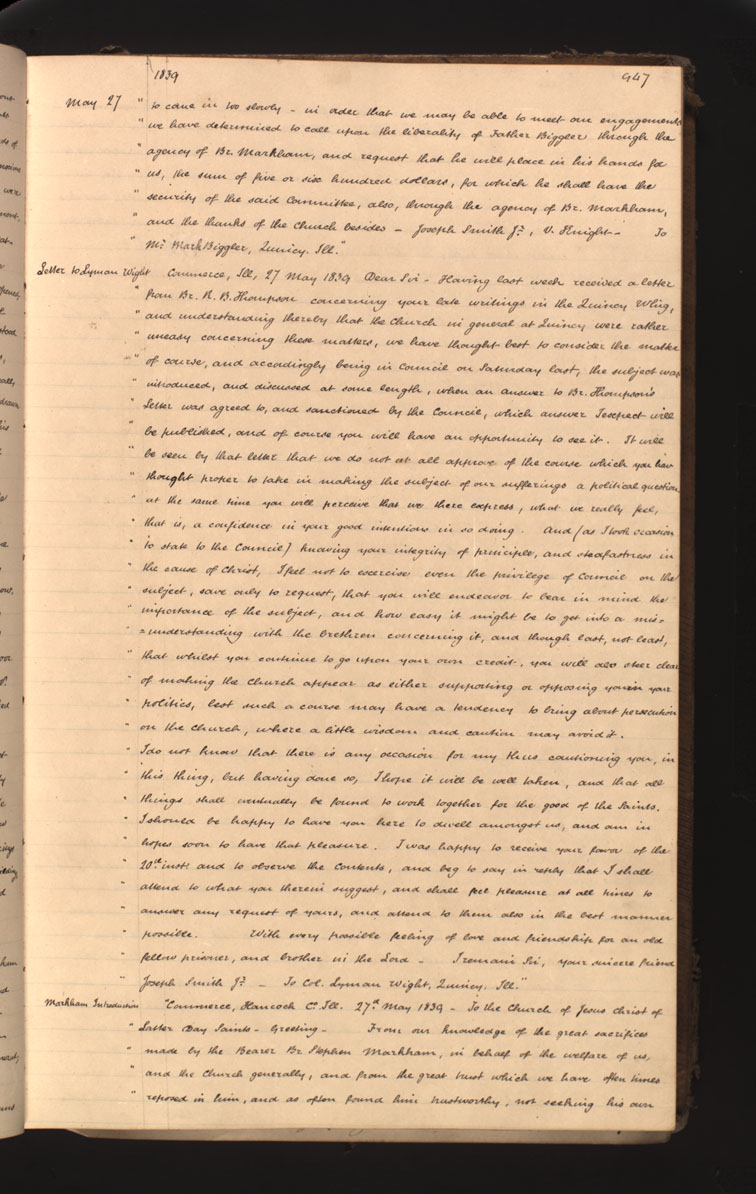 1839 947
May 27 " to came in too slowly - in order that we may be able to meet our engagements
" we have determined to call upon the liberality of Father Biggler through the
" agency of Br. Markham, and request that he will place in his hands for
" us, the sum of five or six hundred dollars, for which he shall have the
" security of the said Committee, also, through the agency of Br. Markham,
" and the thanks of the Church besides - Joseph Smith Jr., V. Knight - To
" Mr. Mark Biggler, Quincy. Ill."
Letter to Lyman Wight Commerce, Ill, 27 May 1839 Dear Sir - Having last week received a letter
" from Br. R. B. Thompson concerning your late writings in the Quincy Whig,
" and understanding thereby that the Church in general at Quincy were rather
" uneasy concerning these matters, we have thought best to consider the matter
" of course, and accordingly being in Council on Saturday last, the subject was
" introduced, and discussed at some length, when an answer to Br. Thompson's
" Letter was agreed to, and sanctioned by the Council, which answer I expect will
" be published, and of course you will have an opportunity to see it. It will
" be seen by that letter that we do not at all approve of the course which you have
" thought proper to take in making the subject of our sufferings a political question,
" at the same time you will perceive that we there express, what we really feel,
" that is, a confidence in your good intentions in so doing. And (as I took occasion
" to state to the Council) knowing your integrity of principle, and steadfastness in
" the cause of Christ, I feel not to exercise even the privilege of Council on the
" subject, save only to request, that you will endeavor to bear in mind the
" importance of the subject, and how easy it might be to get into a mis=
" =understanding with the brethren concerning it, and though last, not least,
" that whilst you continue to go upon your own credit, you will also steer clear
" of making the Church appear as either supporting or opposing you in your
" politics, lest such a course may have a tendency to bring about persecution
" on the Church, where a little wisdom and caution may avoid it.
" I do not know that there is any occasion for my thus cautioning you, in
" this thing, but having done so, I hope it will be well taken, and that all
" things shall eventually be found to work together for the good of the Saints.
" I should be happy to have you here to dwell amongst us, and am in
" hopes soon to have that pleasure. I was happy to receive your favor of the
" 20th. inst: and to observe the Contents, and beg to say in reply that I shall
" attend to what you therein suggest, and shall feel pleasure at all times to
" answer any request of yours, and attend to them also in the best manner
" possible. With every possible feeling of love and friendship for an old
" fellow prisoner, and brother in the Lord - I remain Sir, your sincere friend
" Joseph Smith Jr. - To Col. Lyman Wight, Quincy. Ill."
Markham Introduction "Commerce, Hancock Co. Ill. 27th. May 1839 - To the Church of Jesus Christ of
" Latter Day Saints - Greeting - From our knowledge of the great sacrifices
" made by the Bearer Br. Stephen Markham, in behalf of the welfare of us,
" and the Church generally, and from the great trust which we have often times
" reposed in him, and as often found him trustworthy, not seeking his own